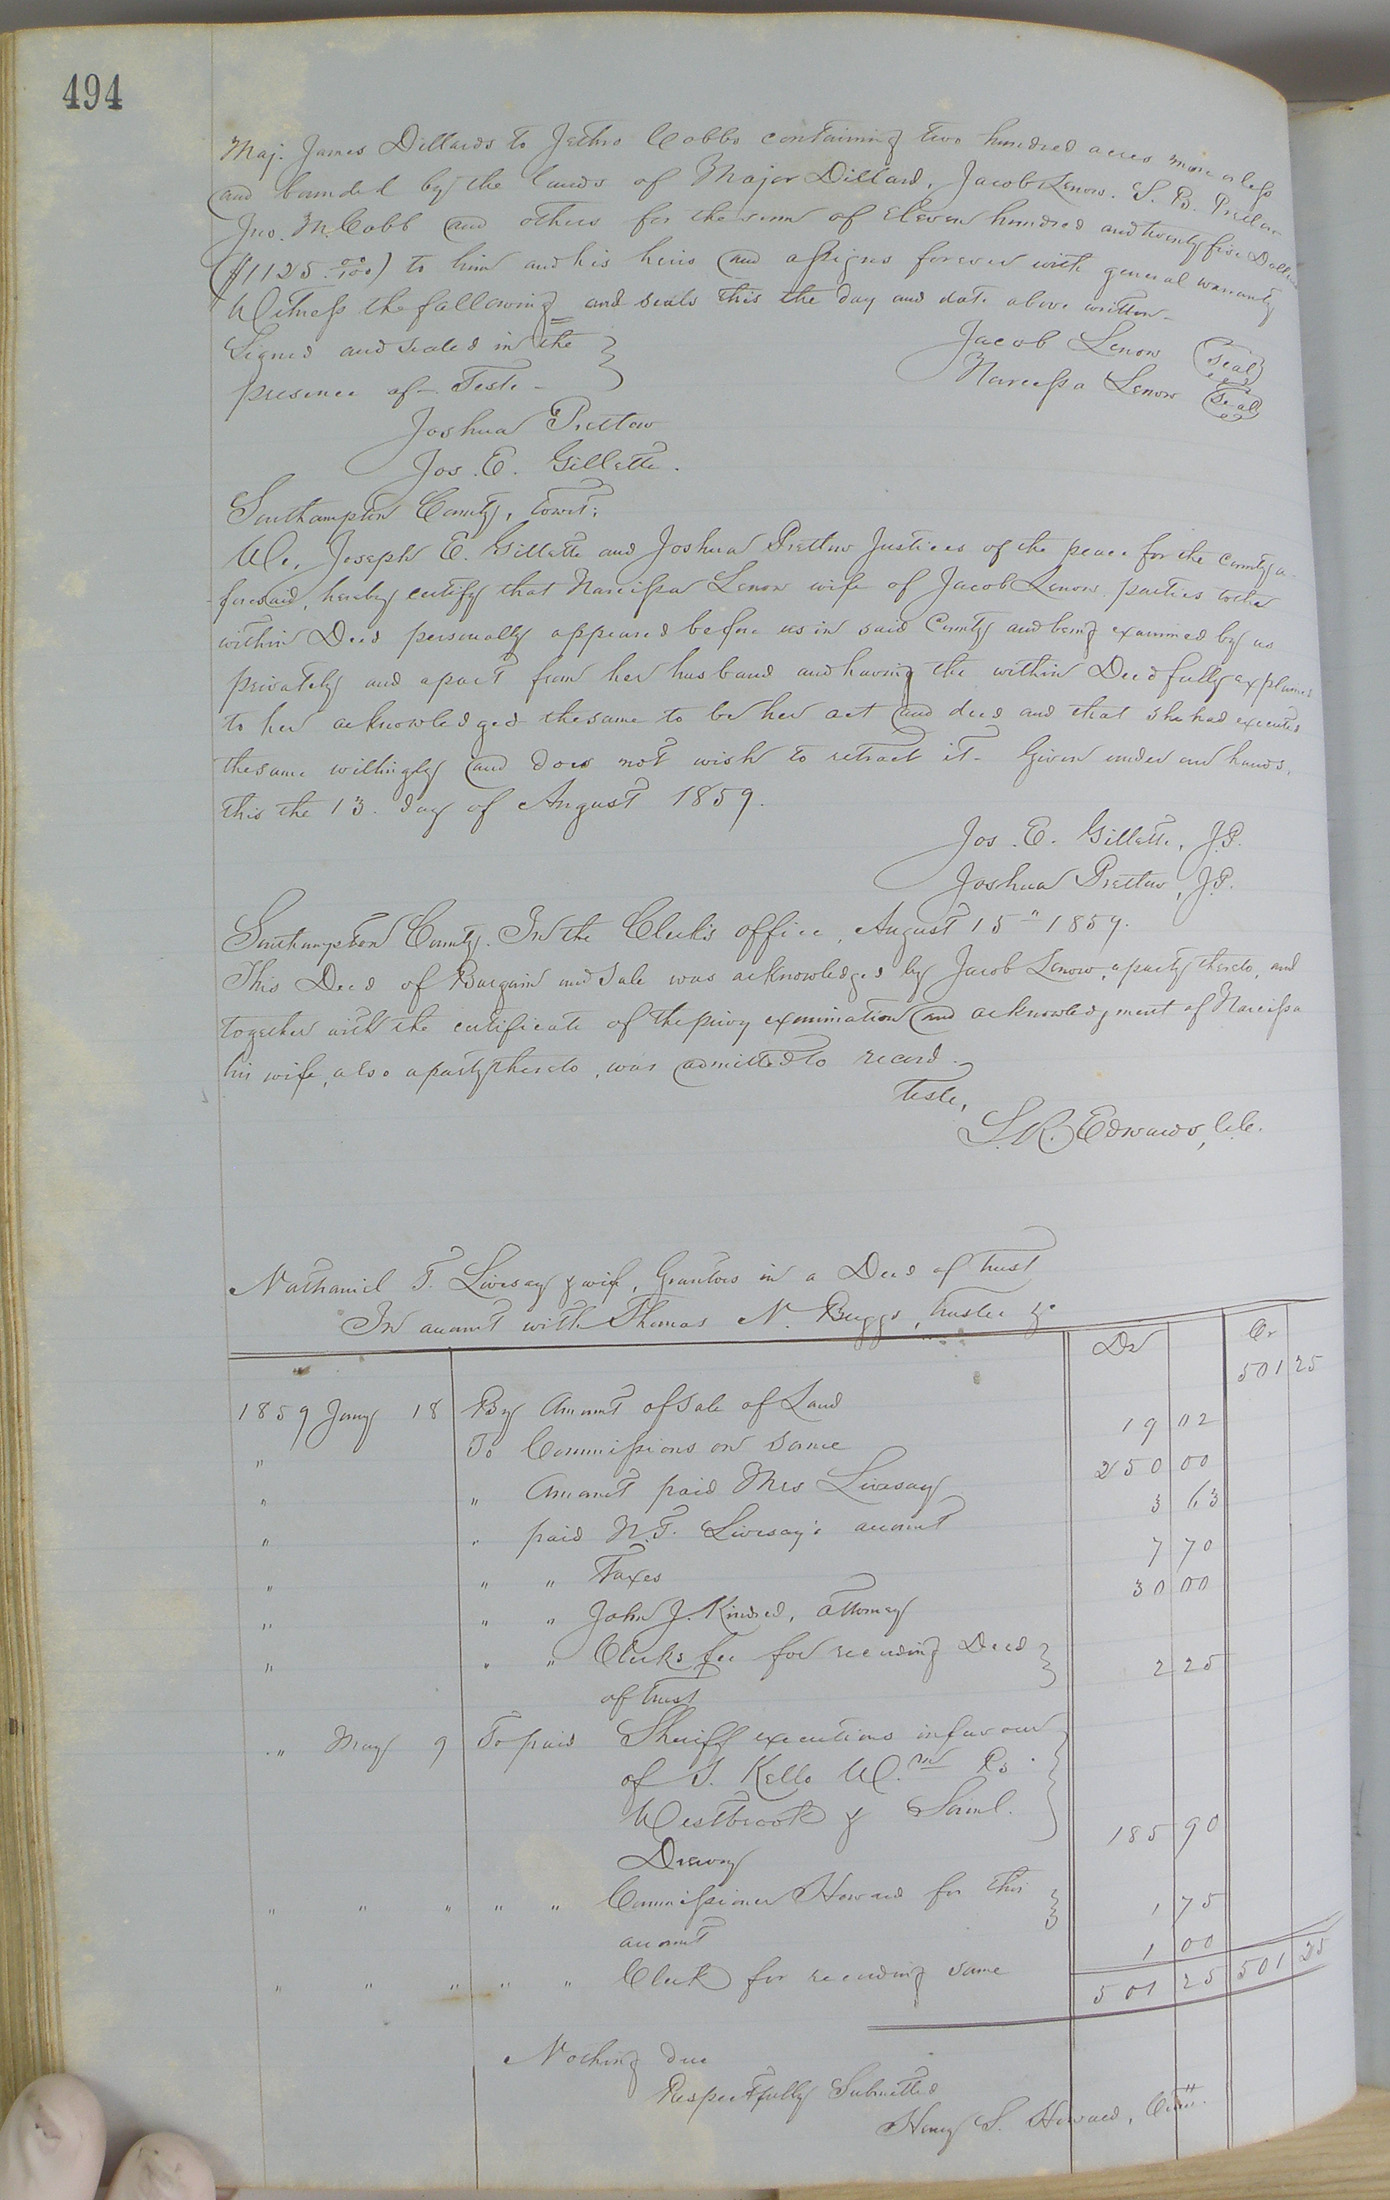 494
Maj. James Dillards to Jethro Cobbs containing two hundred acres more or less
and bounded by the lands of Major Dillard, Jacob Lenow. S. B. Pretlow
Jno. M. Cobb and others for the sum of Eleven hundred and twenty five Dollars
($1125 00/100) to him and his heirs and assigns forever with general warranty
Witness the following and seals this the day and date above written
Signed and sealed in the
presence of Teste
Jacob Lenow (seal)
Narcissa Lenow (Seal)
Joshua Pretlow
Jos. E. Gillette.
Southampton County, towit:
We, Joseph E. Gillette and Joshua Pretlow Justices of the peace for the County a-
foresaid, hereby certify that Narcissa Lenow wife of Jacob Lenow, parties to the
within Deed personally appeared before us in said County and being examined by us
privately and apart from her husband and having the within Deed fully explained
to her acknowledged the same to be her act and deed and that she had executed
the same willingly and does not wish to retract it - Given under our hands,
this the 13. day of August 1859.
Jos. E. Gillette, J.P.
Joshua Pretlow, J.P.
Southampton County. In the Clerk's office, August 15" 1859.
This Deed of Bargain and Sale was acknowledged by Jacob Lenow, a party thereto, and
together with the certificate of the privy examination and acknowledgment of Narcissa
his wife, also a party thereto, was admitted to record.
Teste,
L. R. Edwards, C.C.
Nathaniel T. Livesay & wife, Grantors in a Deed of trust
In account with Thomas N. Buggs, trustee &c
Dr Cr
1859 Jany 18 By Amount of sale of Land 501 25
" To Commissions on same 19 02
" " Amount paid Mrs Livesay 250 00
" " paid N.T. Livesay's account 3 63
" " " Taxes 7 70
" " " John J. Kindred, attorney 30 00
" " " Clerks fee for recording Deed
of trust 2 25
" May 9 To paid Sheriff executions in favour
of S. Kello Wm Ro
Westbrook & Saml.
Drewry 185 90
" " " " " Commissioner Howard for this
account 1 75
" " " " " Clerk for recording same 1 00
501 25 501 25
Nothing due
Respectfully Submitted
Henry S. Howard, Comr.